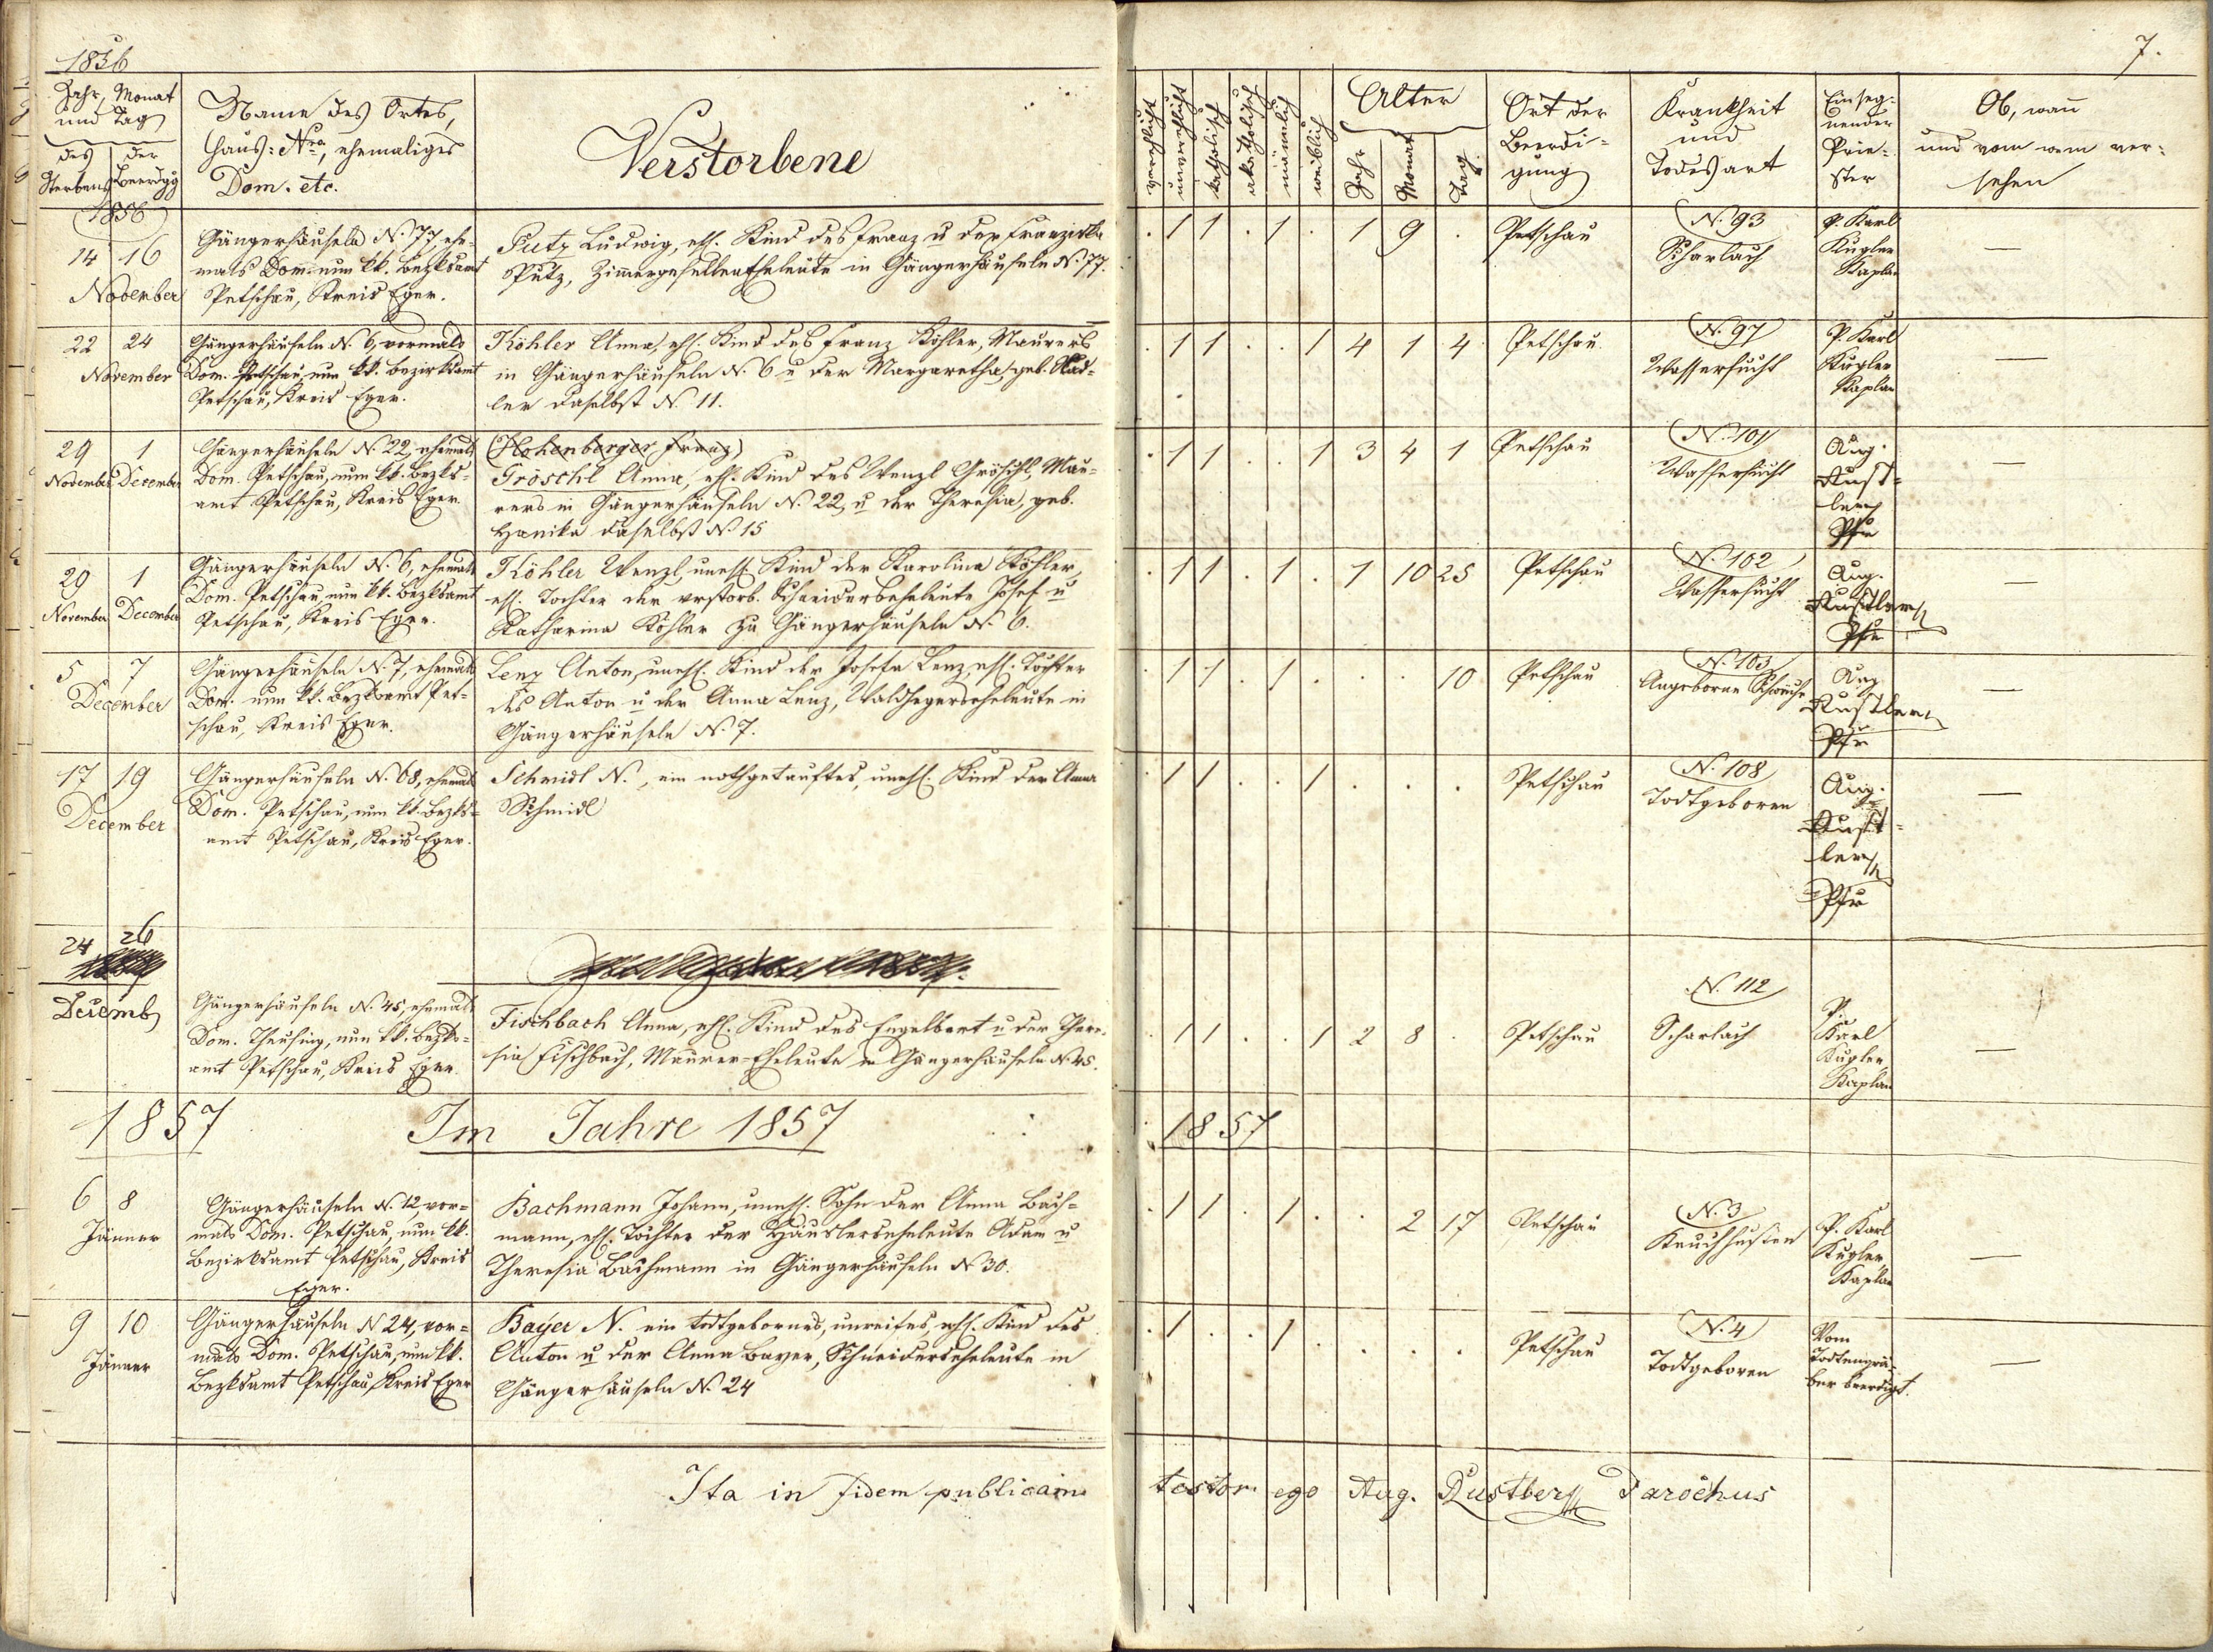 1856
7.
Jahr, Monat
und Tag
des
Sterbens
der
Beerdgg
Name des Ortes,
Haus: Nro, ehemaliges
Dom. etc.
Verstorbene
verehlicht
unverehlicht
katholisch
akatholisch
männlich
weiblich
Alter
Jahr
Monat
Tag
Ort der
Beerdi-
gung
Krankheit
und
Todesart
Einseg-
nender
Prie-
ster
Ob, wann
und von wem ver-
sehen
1856
14 16
November
Gängerhäuseln N. 77, ehe-
mals Dom. nun kk. Bezksamt
Petschau, Kreis Eger.
Putz Ludwig, ehl. Kind des Franz u der Franziska
Putz, Zimmergesellen Eheleute in Gängerhäuseln N. 77.
. 1 1 . 1 . 1 9 . Petschau
N. 93
Scharlach
P. Karl
Kugler
Kaplan
—
22 24
November
Gängerhäuseln N. 6, vormals
Dom. Petschau, nun kk. Bezirksamt
Petschau, Kreis Eger.
Köhler Anna, ehl. Kind des Franz Köhler, Maurers
in Gängerhäuseln N. 6 u der Margaretha, geb.
ler daselbst N. 11.
. 1 1 . . 1 4 1 4 Petschau
N. 97
Wassersucht
P. Karl
Kugler
Kaplan
—
29 1
November December
Gängerhäuseln N. 22, ehemals
Dom. Petschau, nun kk. Bezks-
amt Petschau, Kreis Eger.
(Hohenberger Franz)
Gröschl Anna, ehl. Kind des Wenzl Gröschl, Mau-
rers in Gängerhäuseln N. 22, u der Theresia, geb.
Hanika daselbst N. 15
. 1 1 . . 1 3 4 1 Petschau
N. 101
Wassersucht
Aug.
Rust-
ler
Pfr
—
29 1
November December
Gängerhäuseln N. 6, ehemals
Dom. Petschau, nun kk. Bezksamt
Petschau, Kreis Eger.
Köhler Wenzl, unehl. Kind der Karolina Köhler,
ehl. Tochter der verstorb. Schneiderseheleute Josef u
Katharina Köhler zu Gängerhäuseln N. 6.
. 1 1 . 1 . 1 10 25 Petschau
N. 102
Wassersucht
Aug.
Rustler
Pfr
—
5 7
December
Gängerhäuseln N. 7, ehemals
Dom. nun kk. Bezksamt Pet-
schau, Kreis Eger.
Lenz Anton, unehl. Kind der Josefa Lenz, ehl. Tochter
des Anton u der Anna Lenz, Waldhegerseheleute in
Gängerhäuseln N. 7.
. 1 1 . 1 . . . 10 Petschau
N. 103
Angeborne Schwäche
Aug
Rustler
Pfr
—
17 19
December
Gängerhäuseln N. 68, ehemals
Dom. Petschau, nun kk. Bezks-
amt Petschau, Kreis Eger.
Schmidl N., ein nothgetauftes, unehl. Kind der Anna
Schmidl
. 1 1 . . 1 . . . Petschau
N. 108
Todtgeboren
Aug.
Rust-
ler
Pfr
—
24 26
Decemb
Gängerhäuseln N. 45, ehemals
Dom. Theusing, nun kk. Bezks-
amt Petschau, Kreis Eger.
Fischbach Anna, ehl. Kind des Engelbert u der There-
sia Fischbach, Maurer-Eheleute in Gängerhäuseln N. 45.
. 1 1 . . 1 2 8 . Petschau
N. 112
Scharlach
P.
Karl
Kugler
Kaplan
—
1857
Im Jahre 1857
1857
6 8
Jänner
Gängerhäuseln N. 12, vor-
mals Dom. Petschau, nun kk.
Bezirksamt Petschau, Kreis
Eger.
Bachmann Johann, unehl. Sohn der Anna Bach-
mann, ehl. Tochter der Häuslerseheleute Adam u
Theresia Bachmann in Gängerhäuseln N. 30.
. 1 1 . 1 . . 2 17 Petschau
N. 3
Keuchhusten
P. Karl
Kugler
Kaplan
—
9 10
Jänner
Gängerhäuseln N 24, vor-
mals Dom. Petschau, nun kk.
Bezksamt Petschau, Kreis Eger
Bayer N. ein todtgebornes, unreifes, ehl. Kind des
Anton u der Anna Bayer, Schneiderseheleute in
Gängerhäuseln N. 24
. 1 . . 1 . . . . Petschau
N. 4
Todtgeboren
Vom
Todtengrä-
ber beerdigt.
—
Ita in fidem publicam testor ego Aug. Rustler Parochus